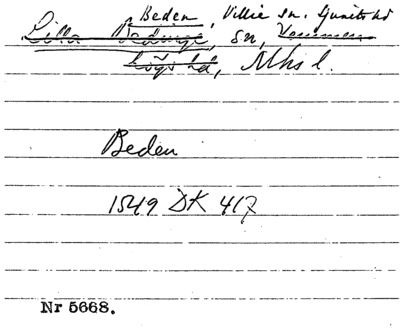 Beden, Villie sn. Ljunits hd
Lilla Bedinge, sn, Vemmen
högs hd, Mhs l.
Beden
1549 DK 417
Nr 5668.